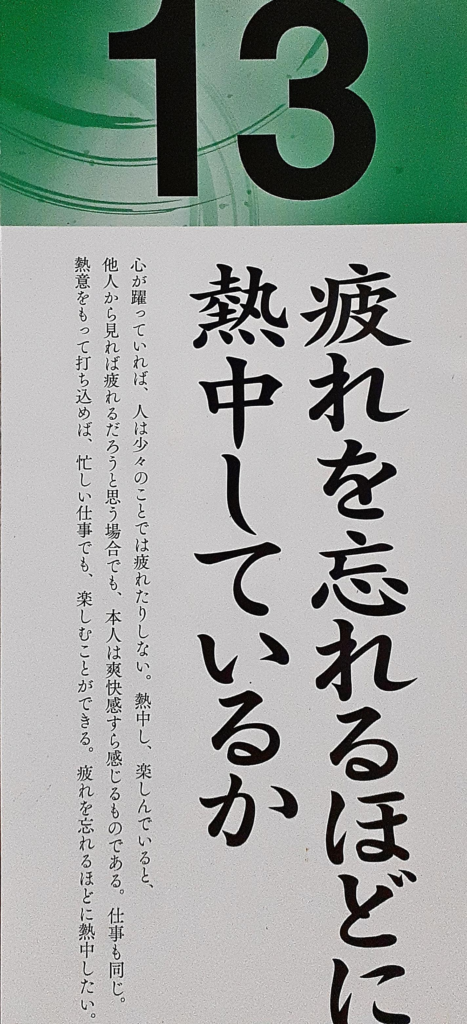 13
疲れを忘れるほどに
熱中しているか
心が躍っていれば、人は少々のことでは疲れたりしない。熱中し、楽しんでいると、
他人から見れば疲れるだろうと思う場合でも、本人は爽快感すら感じるものである。仕事も同じ。
熱意をもって打ち込めば、忙しい仕事でも、楽しむことができる。疲れを忘れるほどに熱中したい。